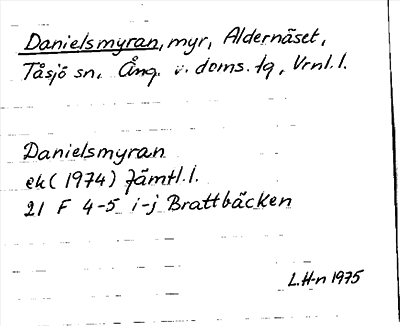 Danielsmyran, myr, Aldernäset,
Tåsjö sn. Ång. v. doms. tg, Vrnl. l.
Danielsmyran
ek (1974) Jämtl. l.
21 F 4-5 i-j Brattbäcken
L.H-n 1975